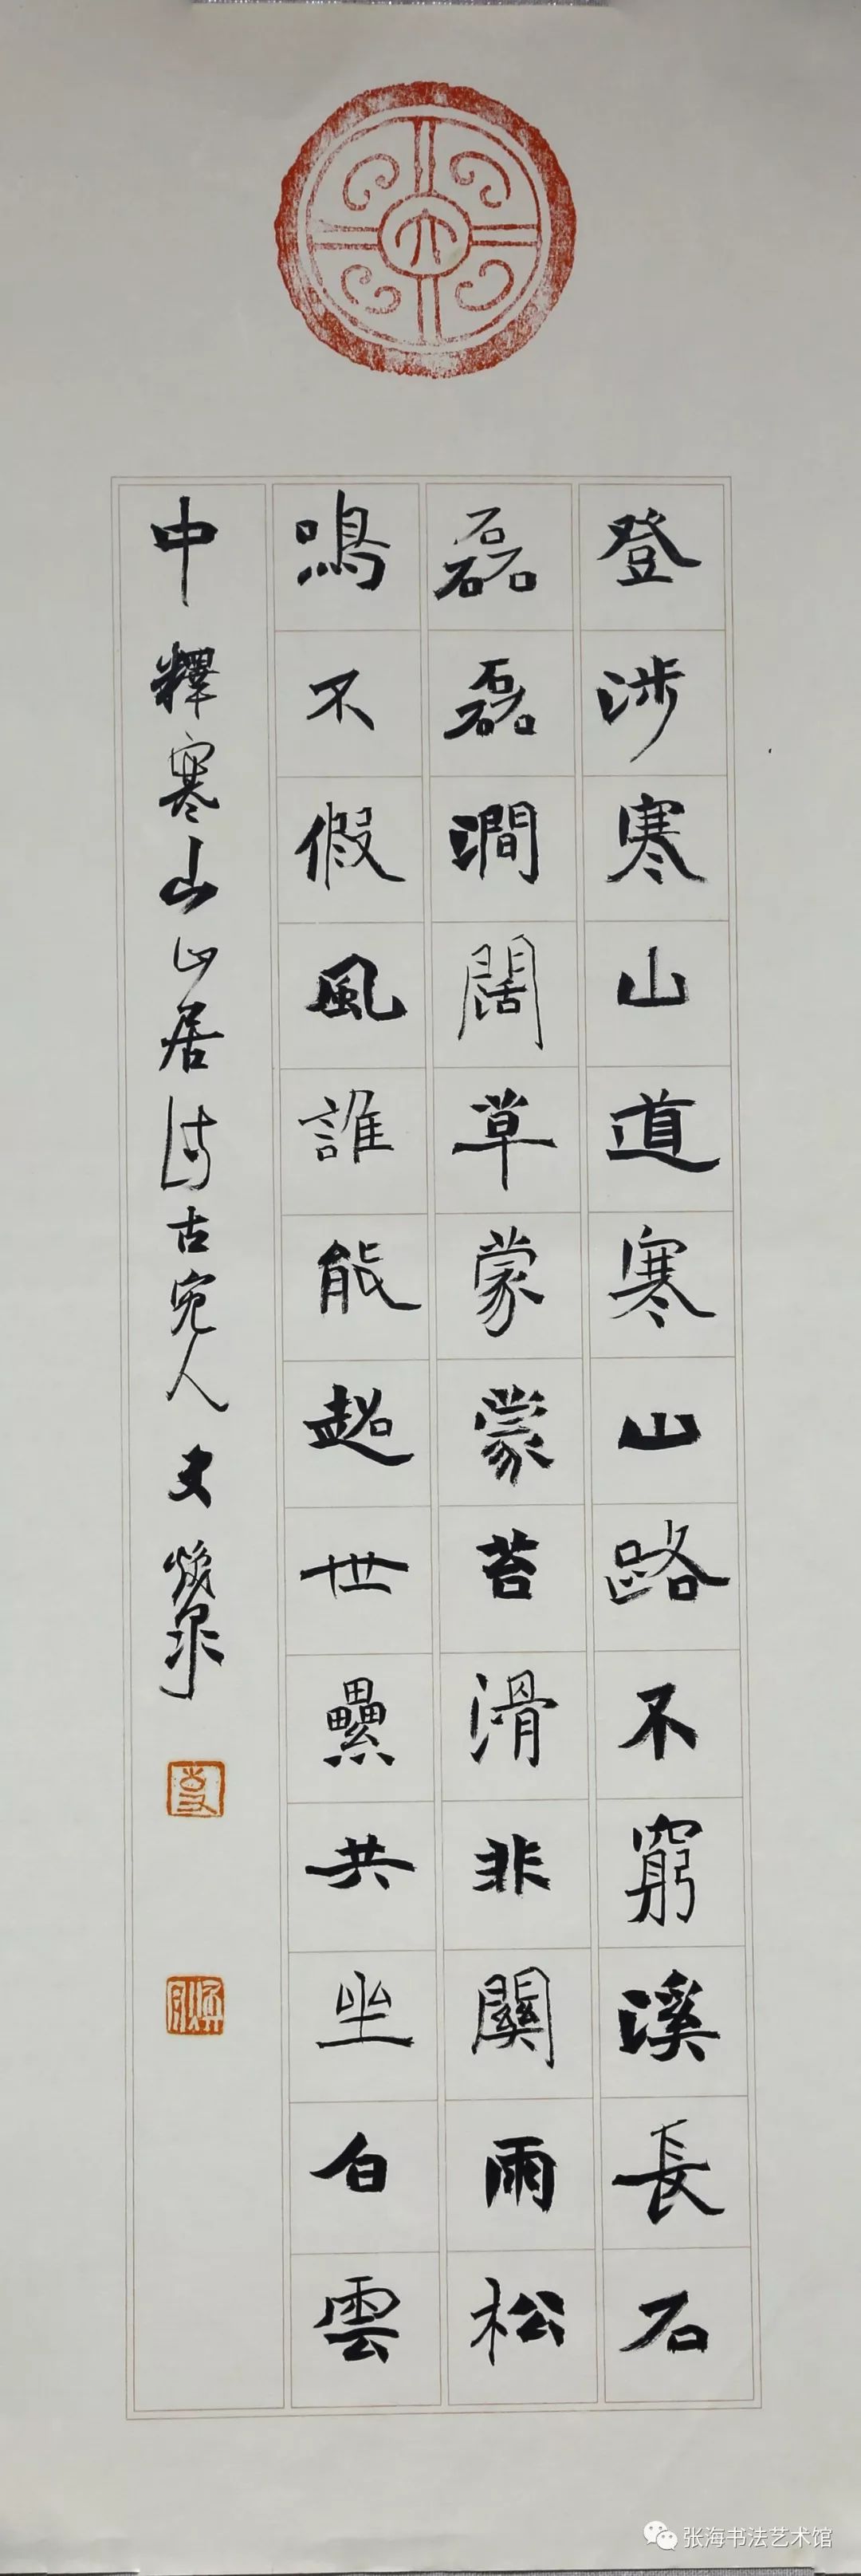 登涉寒山道寒山路不窮溪長石
磊磊澗闊草蒙蒙苔滑非關雨松
鳴不假風誰能超世纍共坐白雲
中釋寒山山居詩古宛人史煥泉
张海书法艺术馆